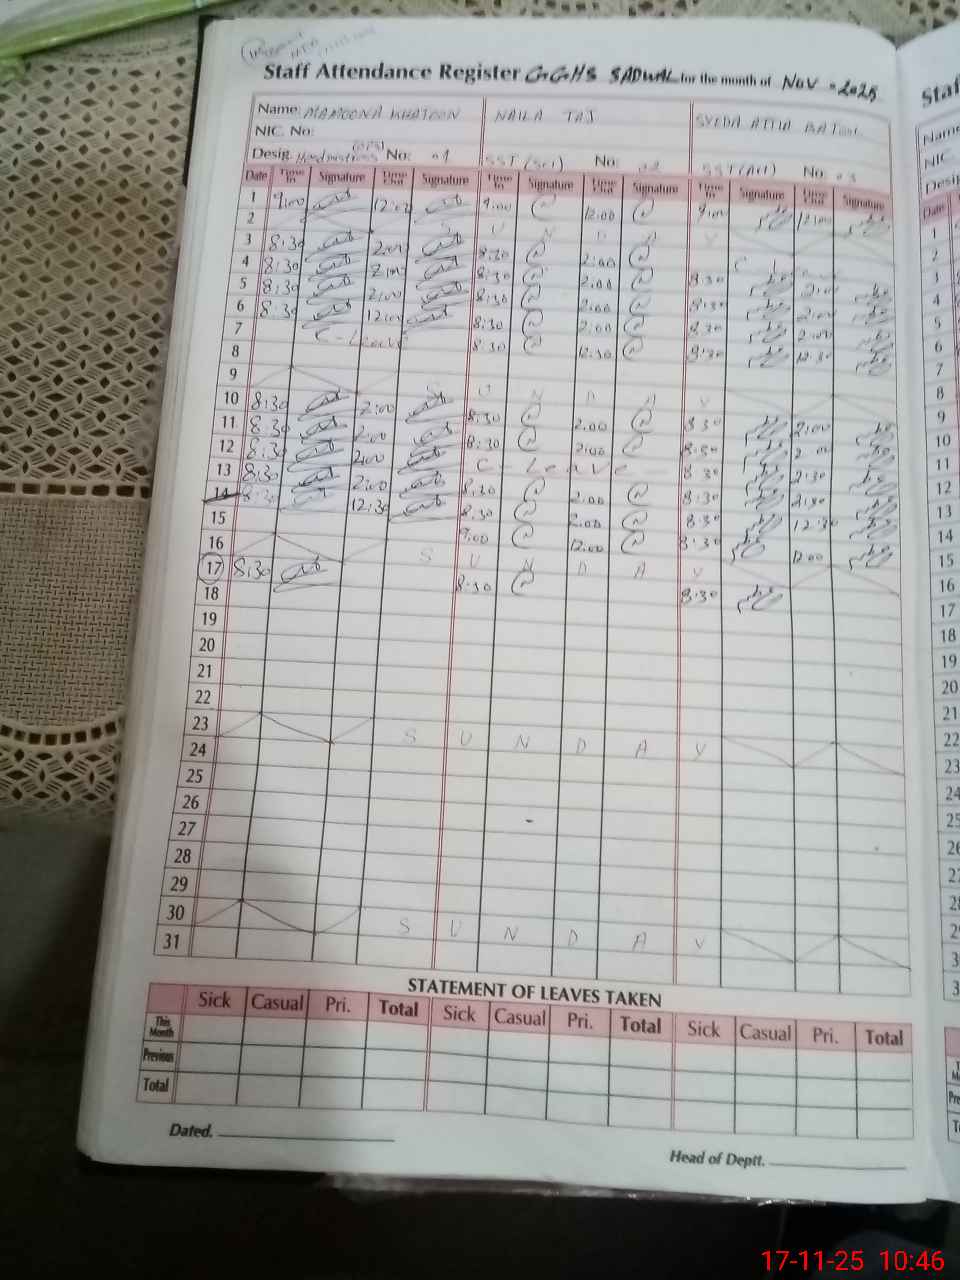 Staff Attendance Register GGHS SADWAL for the month of NOV - 2025
Name: MAMOONA KHATOON NAILA TAJ SYEDA ATTIA BATOOL
NIC. No:
Desig. Headmistress (OPS) No: 01 SST (Sci) No: 02 SST (Art) No: 03
Date Time In Signature Time Out Signature Time In Signature Time Out Signature Time In Signature Time Out Signature
1 9:00 12:00 9:00 12:00 9:00 12:00
2 S U N D A Y
3 8:30 2:00 8:30 2:00 C Leave
4 8:30 2:00 8:30 2:00 8:30 2:00
5 8:30 2:00 8:30 2:00 8:30 2:00
6 8:30 12:00 8:30 2:00 8:30 2:00
7 C-Leave 8:30 12:30 8:30 12:30
8
9 S U N D A Y
10 8:30 2:00 8:30 2:00 8:30 2:00
11 8:30 2:00 8:30 2:00 8:30 2:00
12 8:30 2:00 C - Leave 8:30 2:30
13 8:30 2:00 8:30 2:00 8:30 2:30
14 8:30 12:30 8:30 2:00 8:30 12:30
15 9:00 12:00 8:30 12:00
16 S U N D A Y
17 8:30 8:30 8:30
18
19
20
21
22
23 S U N D A Y
24
25
26
27
28
29
30 S U N D A Y
31
STATEMENT OF LEAVES TAKEN
Sick Casual Pri. Total Sick Casual Pri. Total Sick Casual Pri. Total
This Month
Previous
Total
Dated.
Head of Deptt.
17-11-25 10:46